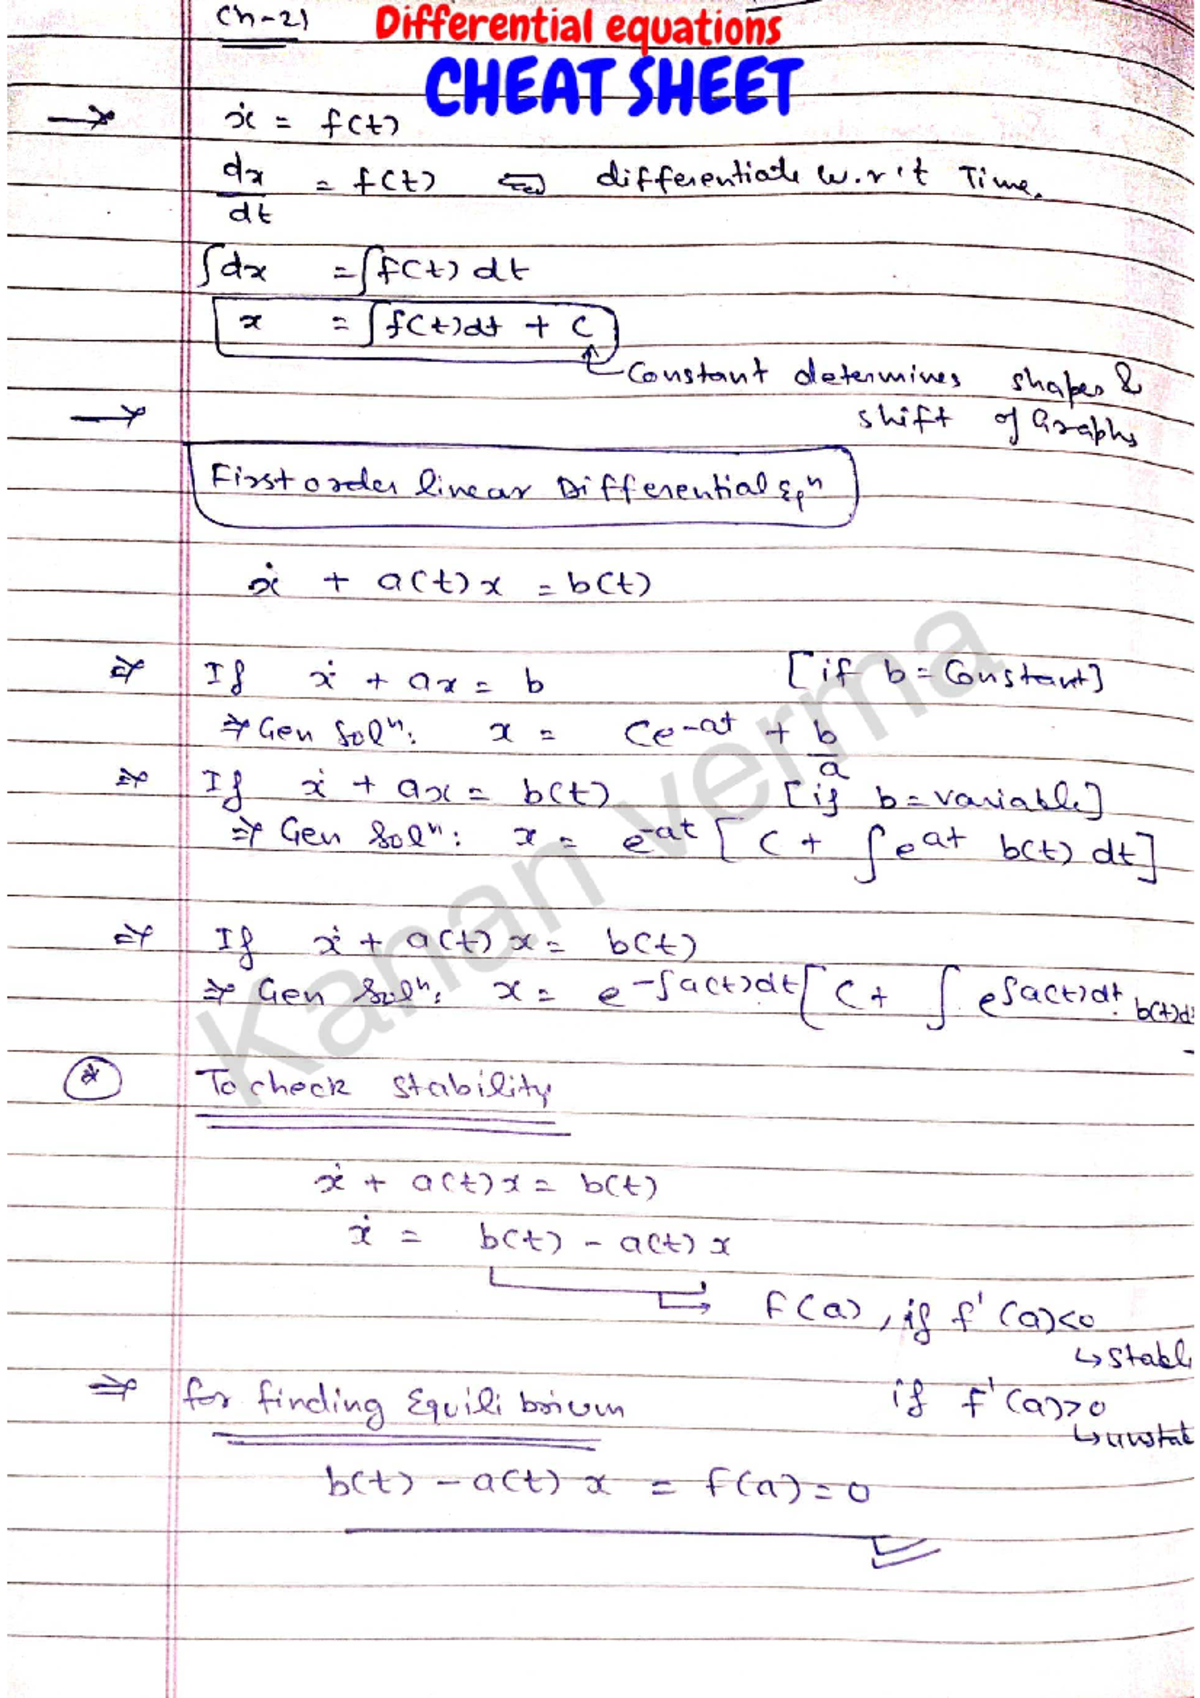 Ch-21 Differential equations
CHEAT SHEET
→ ẋ = f(t)
dx/dt = f(t) ⇐ differentiate w.r.t Time.
∫dx = ∫f(t) dt
x = ∫f(t)dt + C
Constant determines shapes &
→ shift of Graphs
First order linear Differential Eqⁿ
ẋ + a(t)x = b(t)
⇒ If ẋ + ax = b [if b = Constant]
⇒ Gen Solⁿ: x = Ce^-at + b/a
⇒ If ẋ + ax = b(t) [if b = variable]
⇒ Gen Solⁿ: x = e^-at [C + ∫e^at b(t) dt]
⇒ If ẋ + a(t)x = b(t)
⇒ Gen Solⁿ: x = e^-∫a(t)dt [C + ∫ e^∫a(t)dt . b(t)d
* To check stability
ẋ + a(t)x = b(t)
ẋ = b(t) - a(t)x
→ F(a), if f'(a)<0
↳ stabl
⇒ for finding Equilibrium if f'(a)>0
↳ unstab
b(t) - a(t)x = f(a) = 0
Kanan verma